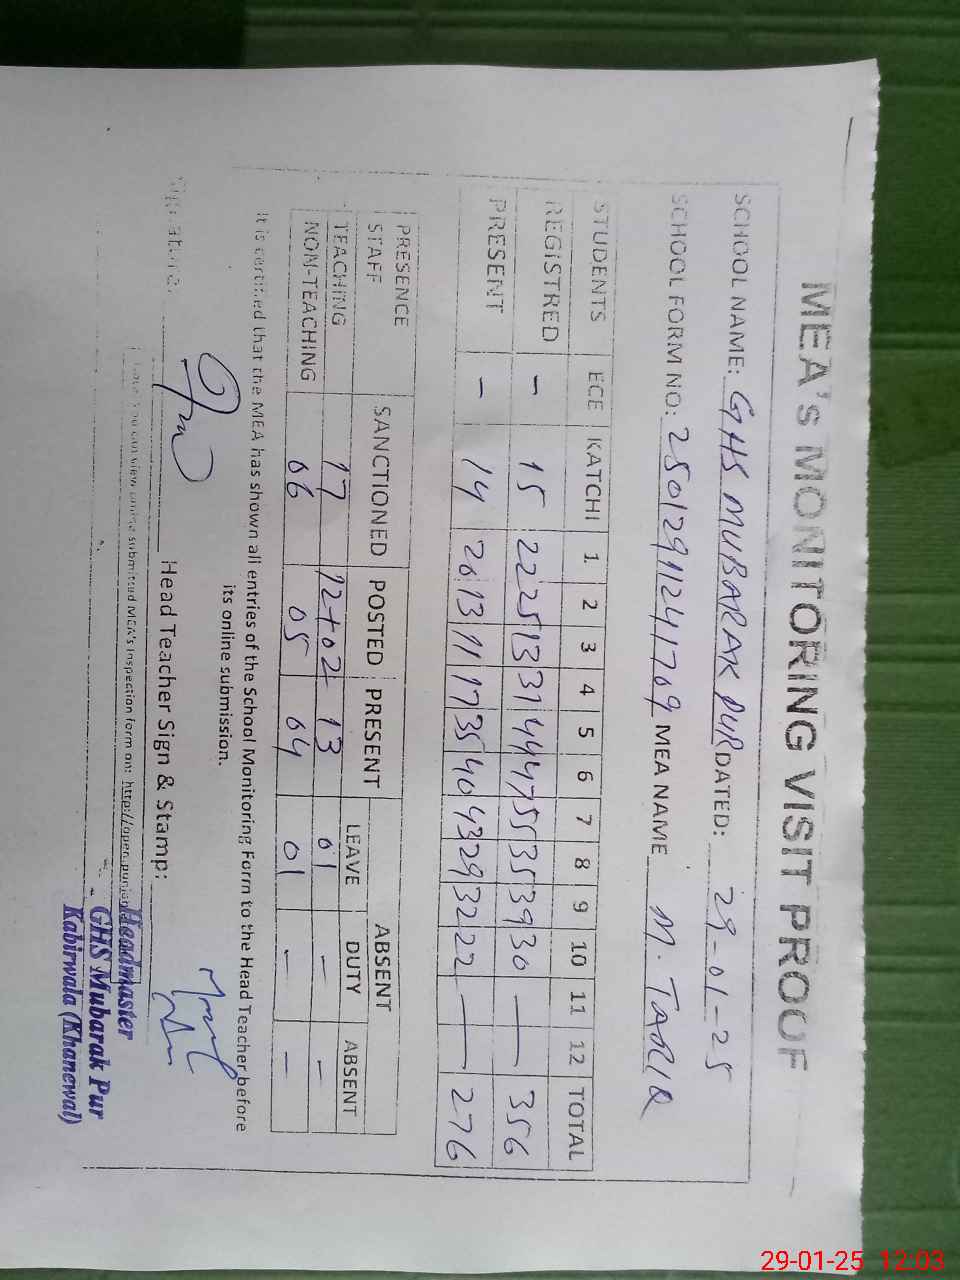 MEA's MONITORING VISIT PROOF
SCHOOL NAME: GHS MUBARAK PUR DATED: 29-01-25
SCHOOL FORM NO: 25012911241709 MEA NAME M. TARIQ
STUDENTS ECE KATCHI 1 2 3 4 5 6 7 8 9 10 11 12 TOTAL
REGISTRED - 15 22 25 13 31 44 47 55 35 39 30 — 356
PRESENT - 14 20 13 11 17 35 40 43 29 32 22 — 276
PRESENCE STAFF SANCTIONED POSTED PRESENT ABSENT
LEAVE DUTY ABSENT
TEACHING 17 12+02 13 01 - -
NON-TEACHING 06 05 04 01 - -
It is certified that the MEA has shown all entries of the School Monitoring Form to the Head Teacher before
its online submission.
Signature: Head Teacher Sign & Stamp:
you can view online submitted MEA's inspection form on: http://open.punjab
Headmaster
GHS Mubarak Pur
Kabirwala (Khanewal)
29-01-25 12:03